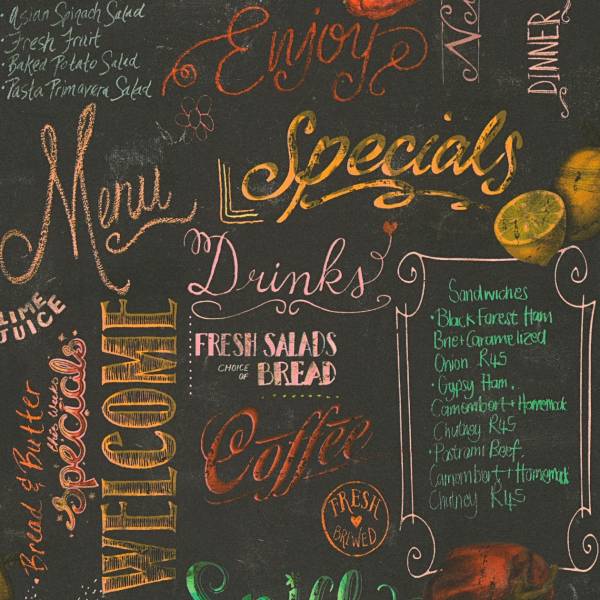 · Asian Spinach Salad
· Fresh Fruit
· Baked Potato Salad
· Pasta Primavera Salad
Enjoy
DINNER
Menu
Specials
Drinks
LIME
JUICE
FRESH SALADS
CHOICE OF BREAD
Coffee
FRESH
BREWED
WELCOME
this week
Specials
Bread & Butter
Sandwiches
· Black Forest Ham
Brie + Caramelized
Onion R45
· Gypsy Ham,
Camembert + Homemade
Chutney R45
· Pastrami Beef,
Camembert + Homemade
Chutney R45